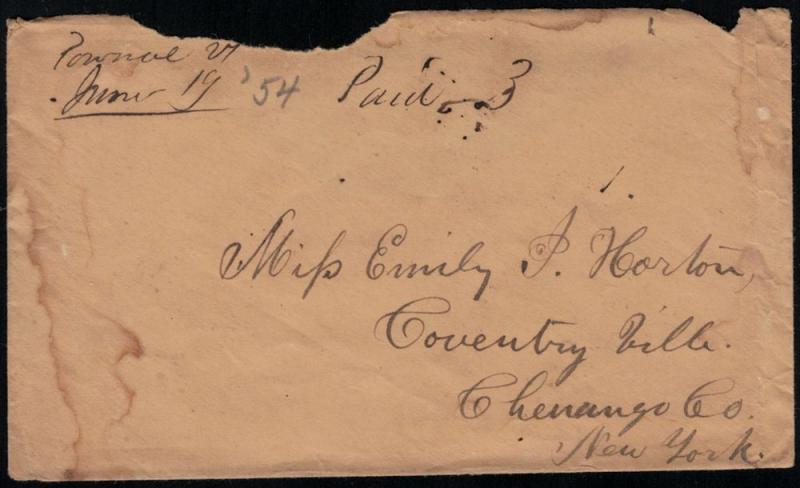 Pownal Vt
June 19 '54 Paid 3
Miſs Emily J. Horton,
Coventry Ville.
Chenango Co.
New York.